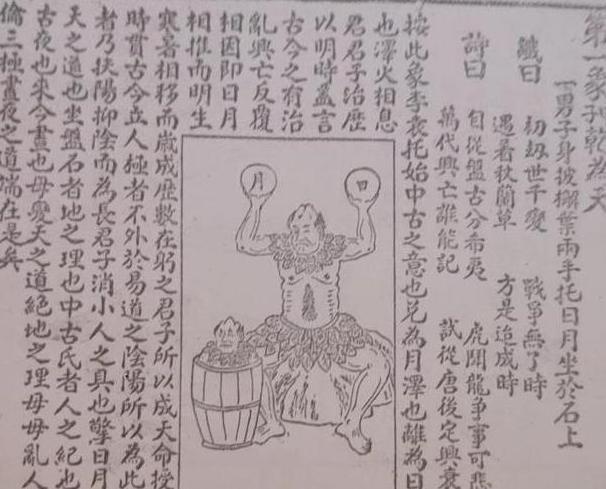 第一象乾為天
一男子身披槲葉兩手托日月坐於石上
讖曰 初劫世千變 戰爭無了時
遇著秋蘭草 方是造成時
詩曰 自從盤古分布夷 虎鬪龍爭事可悲
萬代興亡誰能記 試從唐後定興衰
按此象李袁托始中古之意也兌為月澤也離為日
也澤火相息
君君子治歷
以明時蓋言
古今之有治
亂興亡反覆
相因即日月
相推而明生
日
月
寒暑相移而歲成歷數在躬之君子所以成天命授
時貫古今立人極者不外於易道之陰陽所以為此
者乃扶陽抑陰而為長君子消小人之具也擎日月
天之道也坐盤石者地之理也中古氏者人之紀也
古夜也來今晝也毋變天之道絕地之理毋毋亂人
倫三極晝夜之道端在是矣